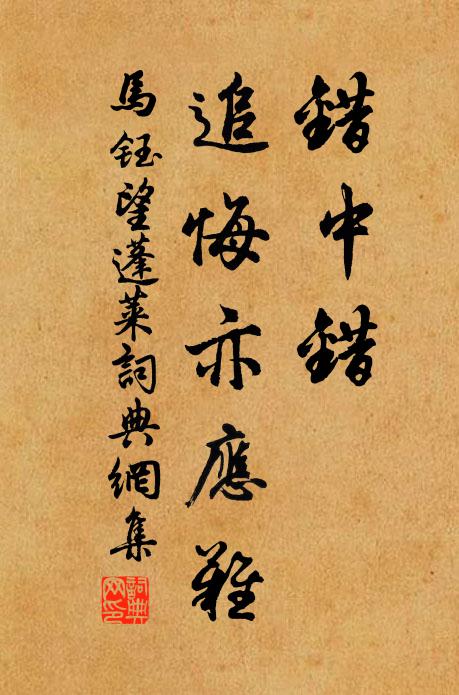 錯中錯
追悔亦應難
馬鈺望蓬萊詞典網集
詞典网印